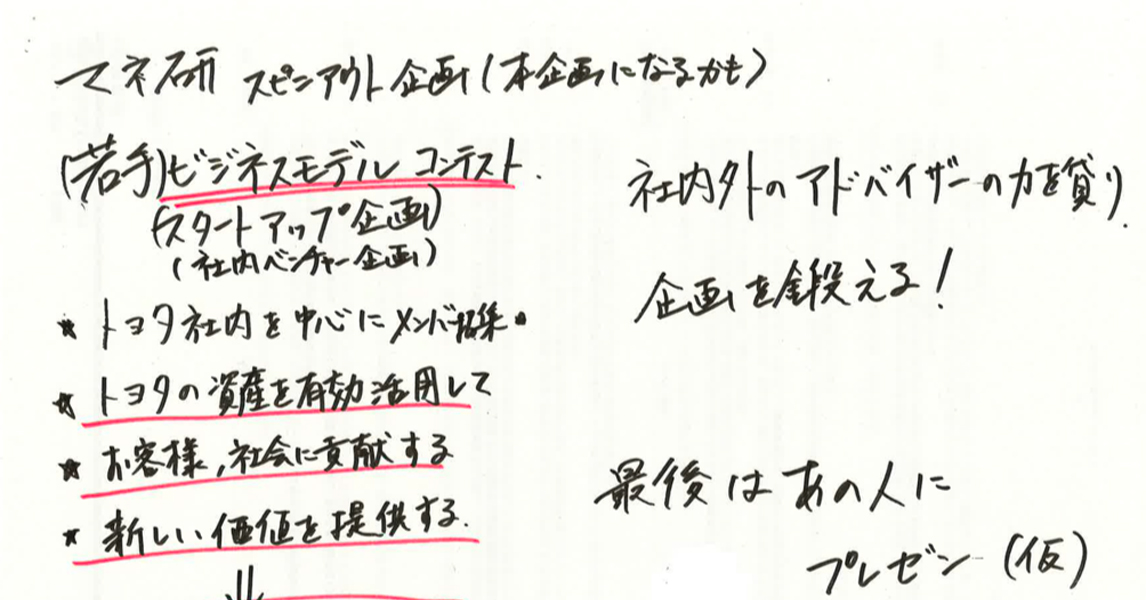 マネ研 スピンアウト企画(本企画になるかも)
(若手)ビジネスモデル コンテスト.
(スタートアップ企画)
(社内ベンチャー企画)
* トヨタ社内を中心にメンバー招集。
* トヨタの資産を有効活用して
* お客様,社会に貢献する
* 新しい価値を提供する.
⇓
社内外のアドバイザーの力を貸り
企画を鍛える!
最後はあの人に
プレゼン (仮)